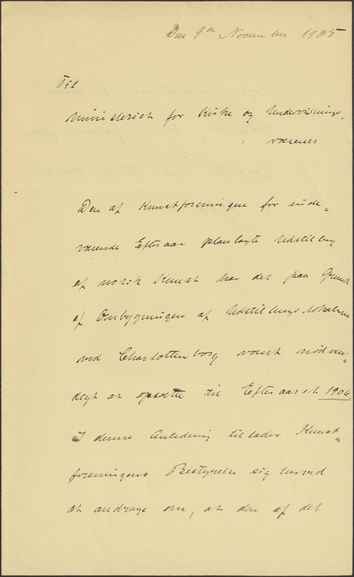 Den 9de November 1905
Til
Ministeriet for Kirke og Undervisnings-
væsenet
Den af Kunstforeningen for inde-
værende Efteraar planlagte Udstilling
af norsk Kunst har det paa Grund
af Ombygningen af Udstillingslokalerne
ved Charlottenborg været nødven-
digt at opsætte til Efteraaret 1906
I denne Anledning tillader Kunst-
foreningens Bestyrelse sig herved
at andrage om, at den af det